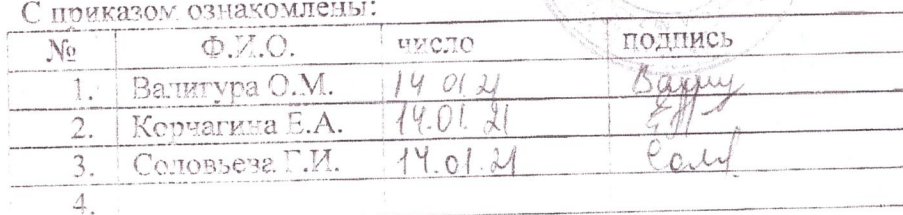 С приказом ознакомлены:
№ Ф.И.О. число подпись
1. Валигура О.М. 14 01 21
2. Корчагина Е.А. 14.01.21
3. Соловьева Г.И. 14.01.21
4.